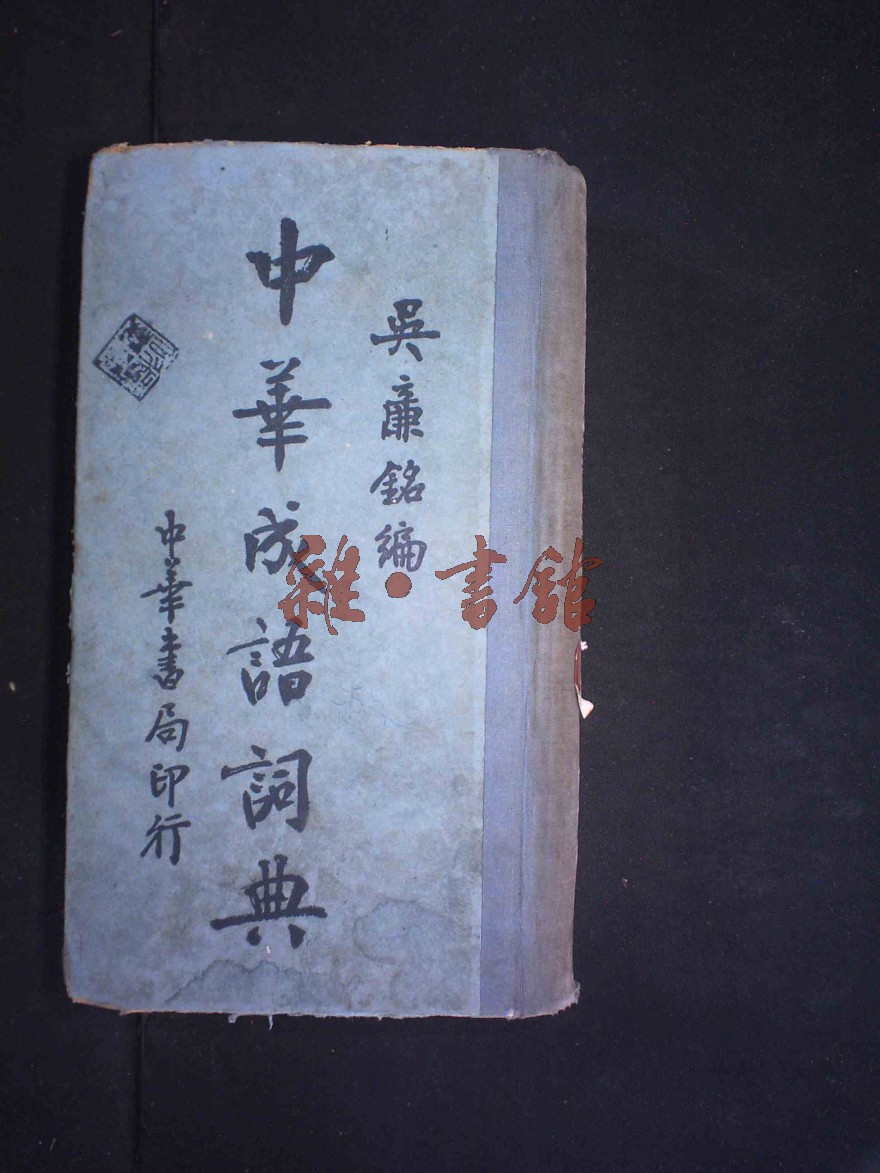 吳廉銘編
中華成語詞典
中華書局印行
雜·書館